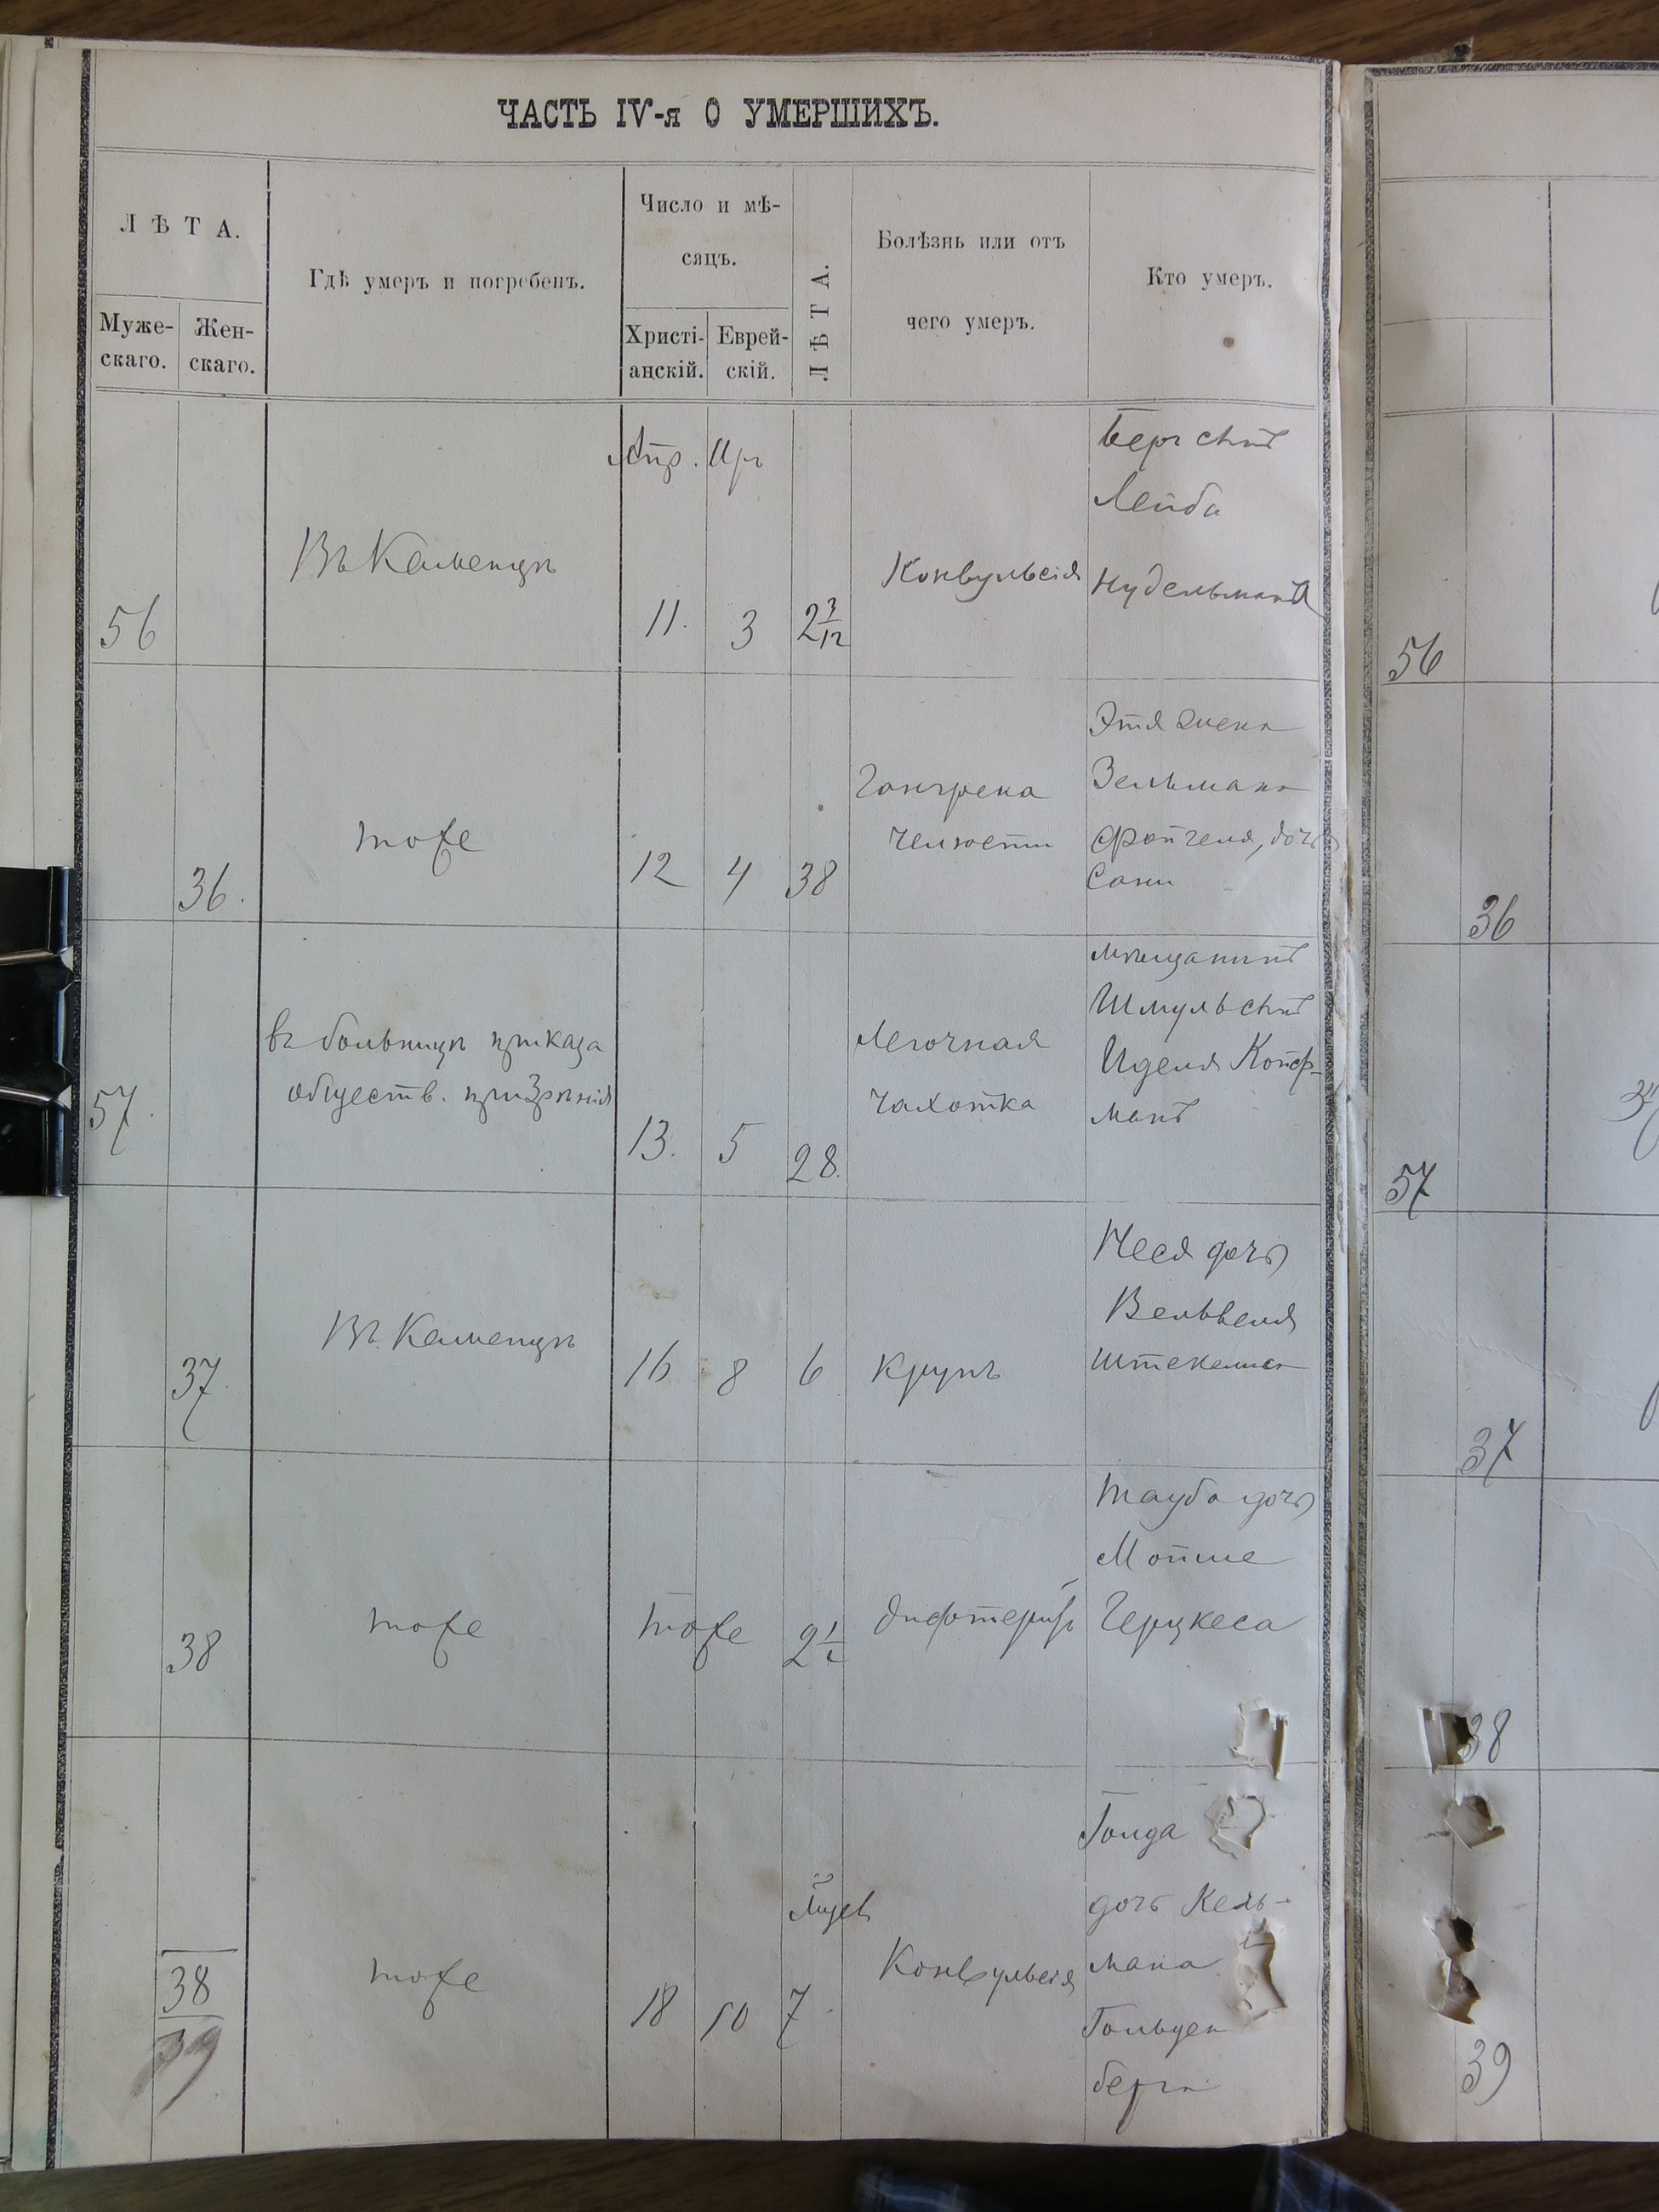 ЧАСТЬ IV-я О УМЕРШИХЪ.
ЛѢТА.
Муже-
скаго.
Жен-
скаго.
Гдѣ умеръ и погребенъ.
Число и мѣ-
сяцъ.
Христі-
анскій.
Еврей-
скій.
ЛѢТА.
Болѣзнь или отъ
чего умеръ.
Кто умеръ.
56
Въ Каменцѣ
Апр. Ир
11. 3 2 3/12
Конвульсія
Берг сынъ
Лейба
Нудельмана
56
36.
тоже
12 4 38
Гангрена
челюсти
Этя жена
Зельмана
дочь
Сани
36
57.
въ больницѣ приказа
обществ. призрѣнія
13. 5 28.
Легочная
чахотка
мѣщанинъ
Шмуль сынъ
Иделя Койф-
манъ
57
37.
Въ Каменцѣ
16 8 6
крупъ
Песя дочь
Вельвеля
37
38
тоже
тоже
2 1/2
дифтеритъ
Тауба дочь
Мотие
Герцкеса
38
38
39
тоже
18 10 7.
Конвульсія
Голда
дочь Кель-
мана
Гольден
берга
39